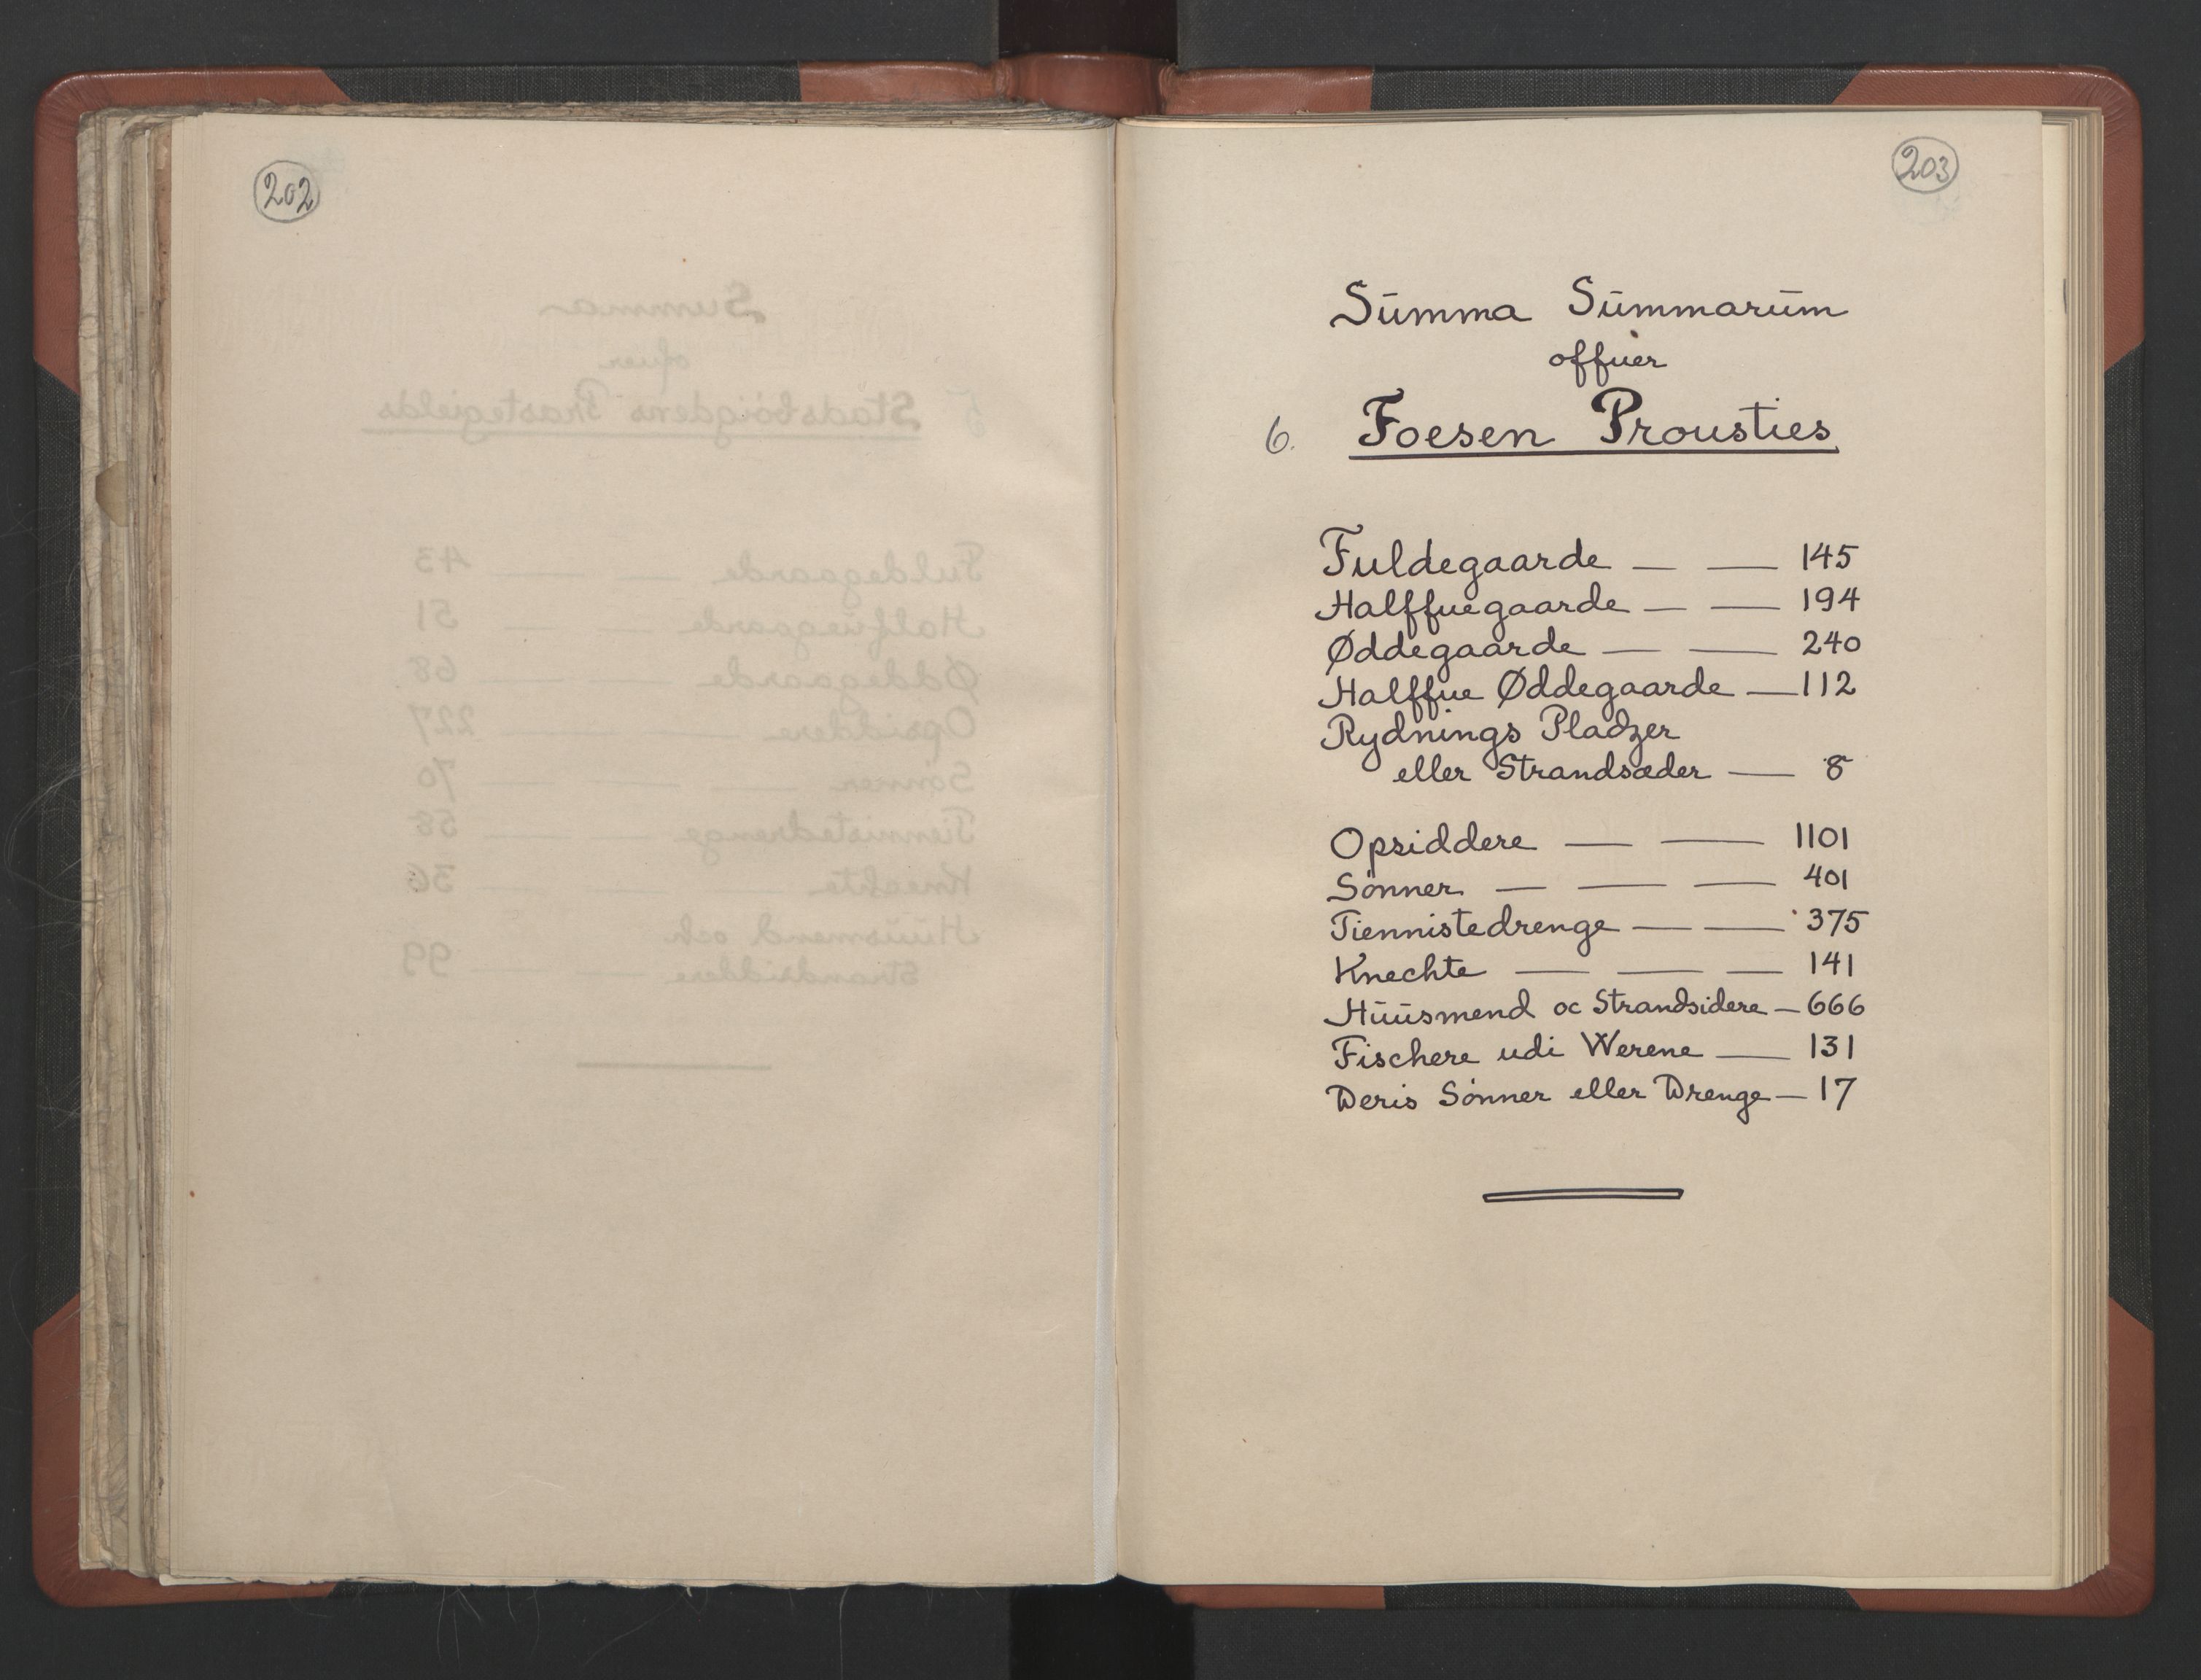 202
203
Sūmma Sūmmarūm
offuer
6. Foesen Prousties
Fuldegaarde — — 145
Halffuegaarde — — 194
Øddegaarde — — 240
Halffue Øddegaarde — 112
Rydnings Pladzer
eller Strandsæder — 8
Opsiddere — — 1101
Sönner — — — 401
Tiennistedrenge — — 375
Knechte — — — 141
Hūūsmend oc Strandsidere — 666
Fischere udi Werene — 131
Deris Sönner eller Drenge — 17